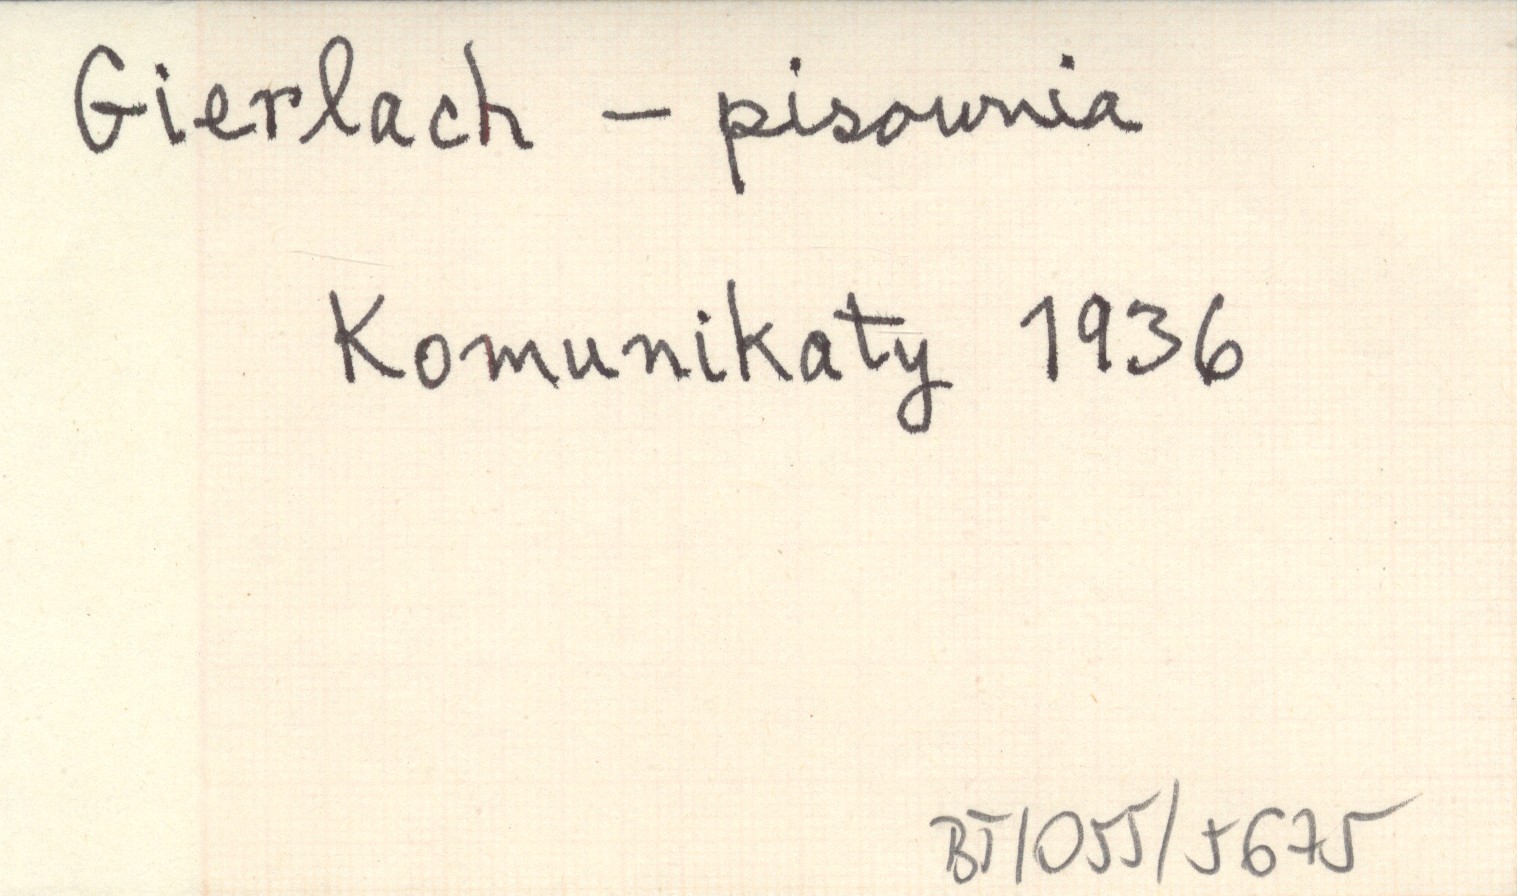 Gierlach – pisownia
Komunikaty 1936
BT/055/5675